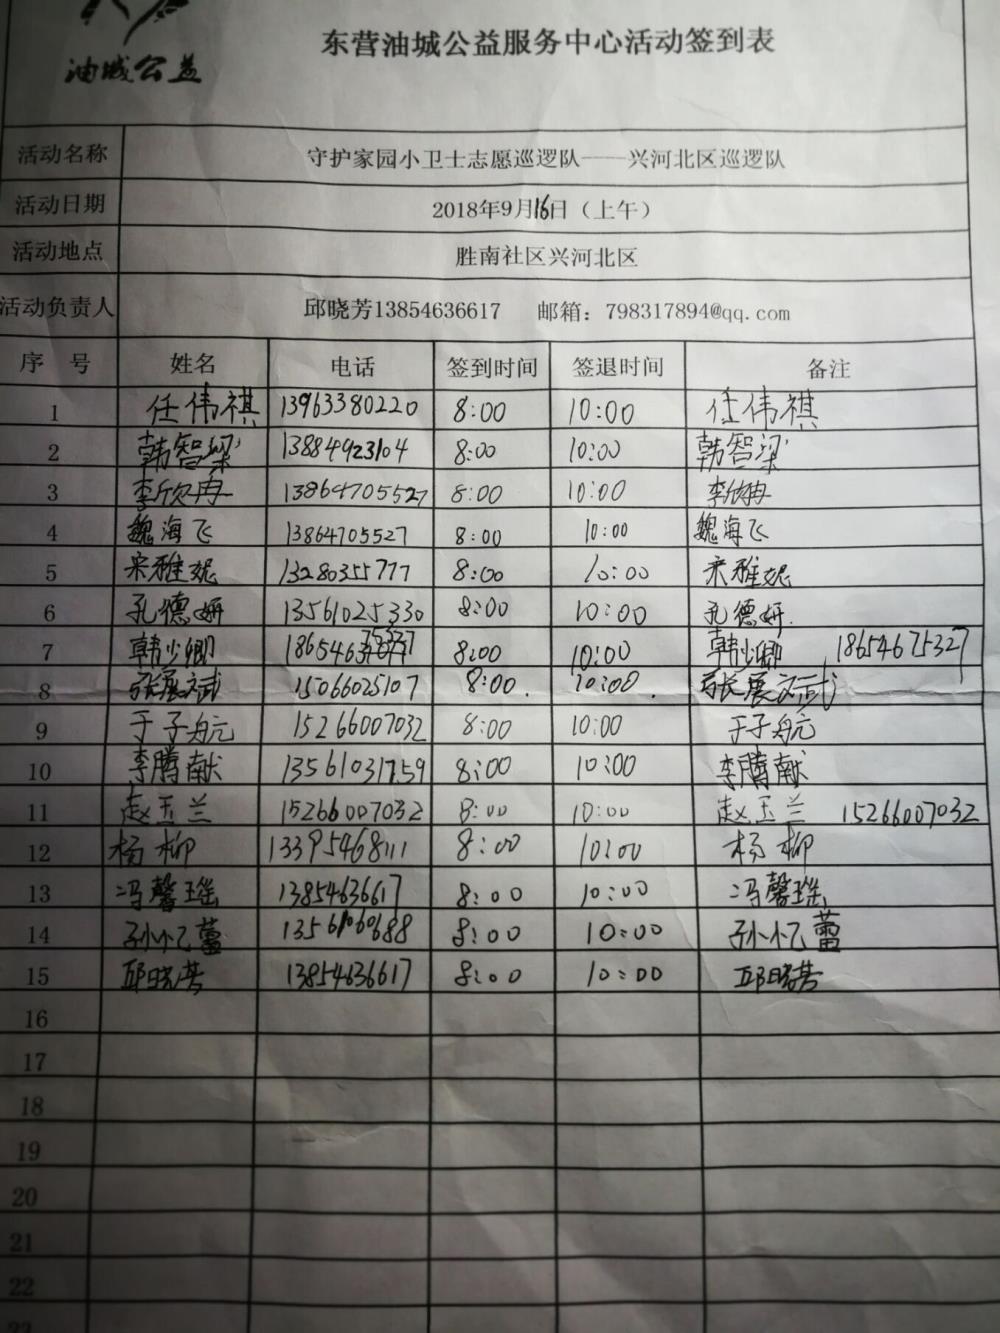 油城公益
东营油城公益服务中心活动签到表
活动名称 守护家园小卫士志愿巡逻队——兴河北区巡逻队
活动日期 2018年9月16日（上午）
活动地点 胜南社区兴河北区
活动负责人 邱晓芳13854636617 邮箱：798317894@qq.com
序 号 姓名 电话 签到时间 签退时间 备注
1 任伟祺 13963380220 8:00 10:00 任伟祺
2 韩智梁 13884923104 8:00 10:00 韩智梁
3 李欣冉 13864705527 8:00 10:00 李欣冉
4 魏海飞 13864705527 8:00 10:00 魏海飞
5 宋雅妮 13280355777 8:00 10:00 宋雅妮
6 孔德妍 13561025330 8:00 10:00 孔德妍.
7 韩少卿 8:00 10:00 韩少卿 18654675327
8 张展斌 15066025107 8:00. 10:00. 张展斌
9 于子航 15266007032 8:00 10:00 于子航
10 李腾献 13561031759 8:00 10:00 李腾献
11 赵玉兰 15266007032 8:00 10:00 赵玉兰 15266007032
12 杨柳 13395468111 8:00 10:00 杨柳
13 冯馨瑶 13854636617 8:00 10:00 冯馨瑶
14 孙忆蕾 13561060688 8:00 10:00 孙忆蕾
15 邱晓芳 13854636617 8:00 10:00 邱晓芳
16
17
18
19
20
21
22
23